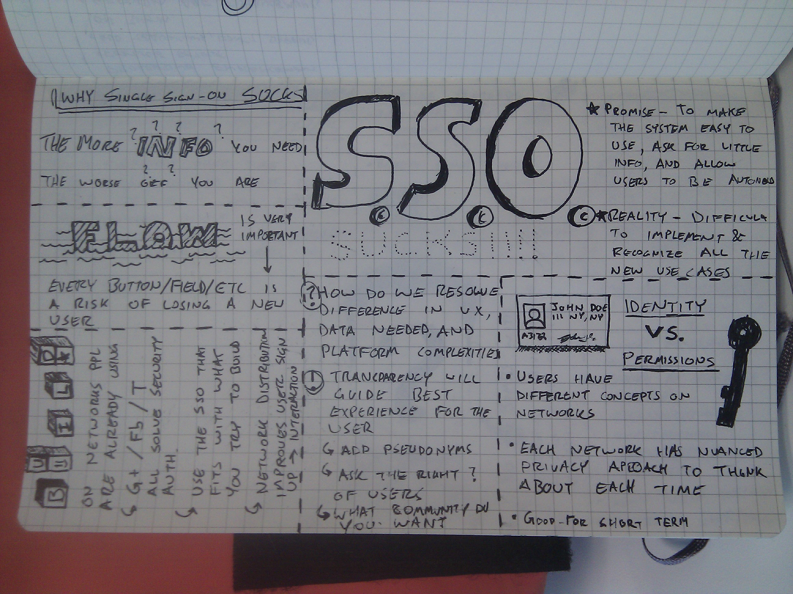 WHY SINGLE SIGN-ON SUCKS
THE MORE INFO YOU NEED
THE WORSE OFF YOU ARE
? ? ? ? ? ?
FLOW
IS VERY
IMPORTANT
EVERY BUTTON/FIELD/ETC IS
A RISK OF LOSING A NEW
USER
BUILD
ON NETWORKS PPL
ARE ALREADY USING
G+ / Fb / T
ALL SOLVE SECURITY
AUTH
USE THE SSO THAT
FITS WITH WHAT
YOU TRY TO BUILD
NETWORK DISTRIBUTION
IMPROVES USER SIGN
UP → INTERACTION
S.S.O.
SUCKS!!!!
★ PROMISE - TO MAKE
THE SYSTEM EASY TO
USE, ASK FOR LITTLE
INFO, AND ALLOW
USERS TO BE
★ REALITY - DIFFICUL
TO IMPLEMENT &
RECOGNIZE ALL THE
NEW USE CASES
? HOW DO WE RESOLVE
DIFFERENCE IN UX,
DATA NEEDED, AND
PLATFORM COMPLEXITIES
! TRANCPARENCY WILL
GUIDE BEST
EXPERIENCE FOR THE
USER
ADD PSEUDONYMS
ASK THE RIGHT ?
OF USERS
WHAT COMMUNITY DO
YOU WANT
JOHN DOE
111 NY, NY
IDENTITY
VS.
PERMISSIONS
• USERS HAVE
DIFFERENT CONCEPTS ON
NETWORKS
• EACH NETWORK HAS NUANCED
PRIVACY APROACH TO THINK
ABOUT EACH TIME
• GOOD FOR SHORT TERM